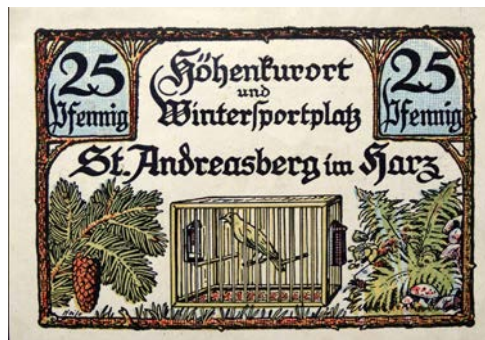 25
Pfennig
Höhenkurort
und
Wintersportplatz
25
Pfennig
St. Andreasberg im Harz